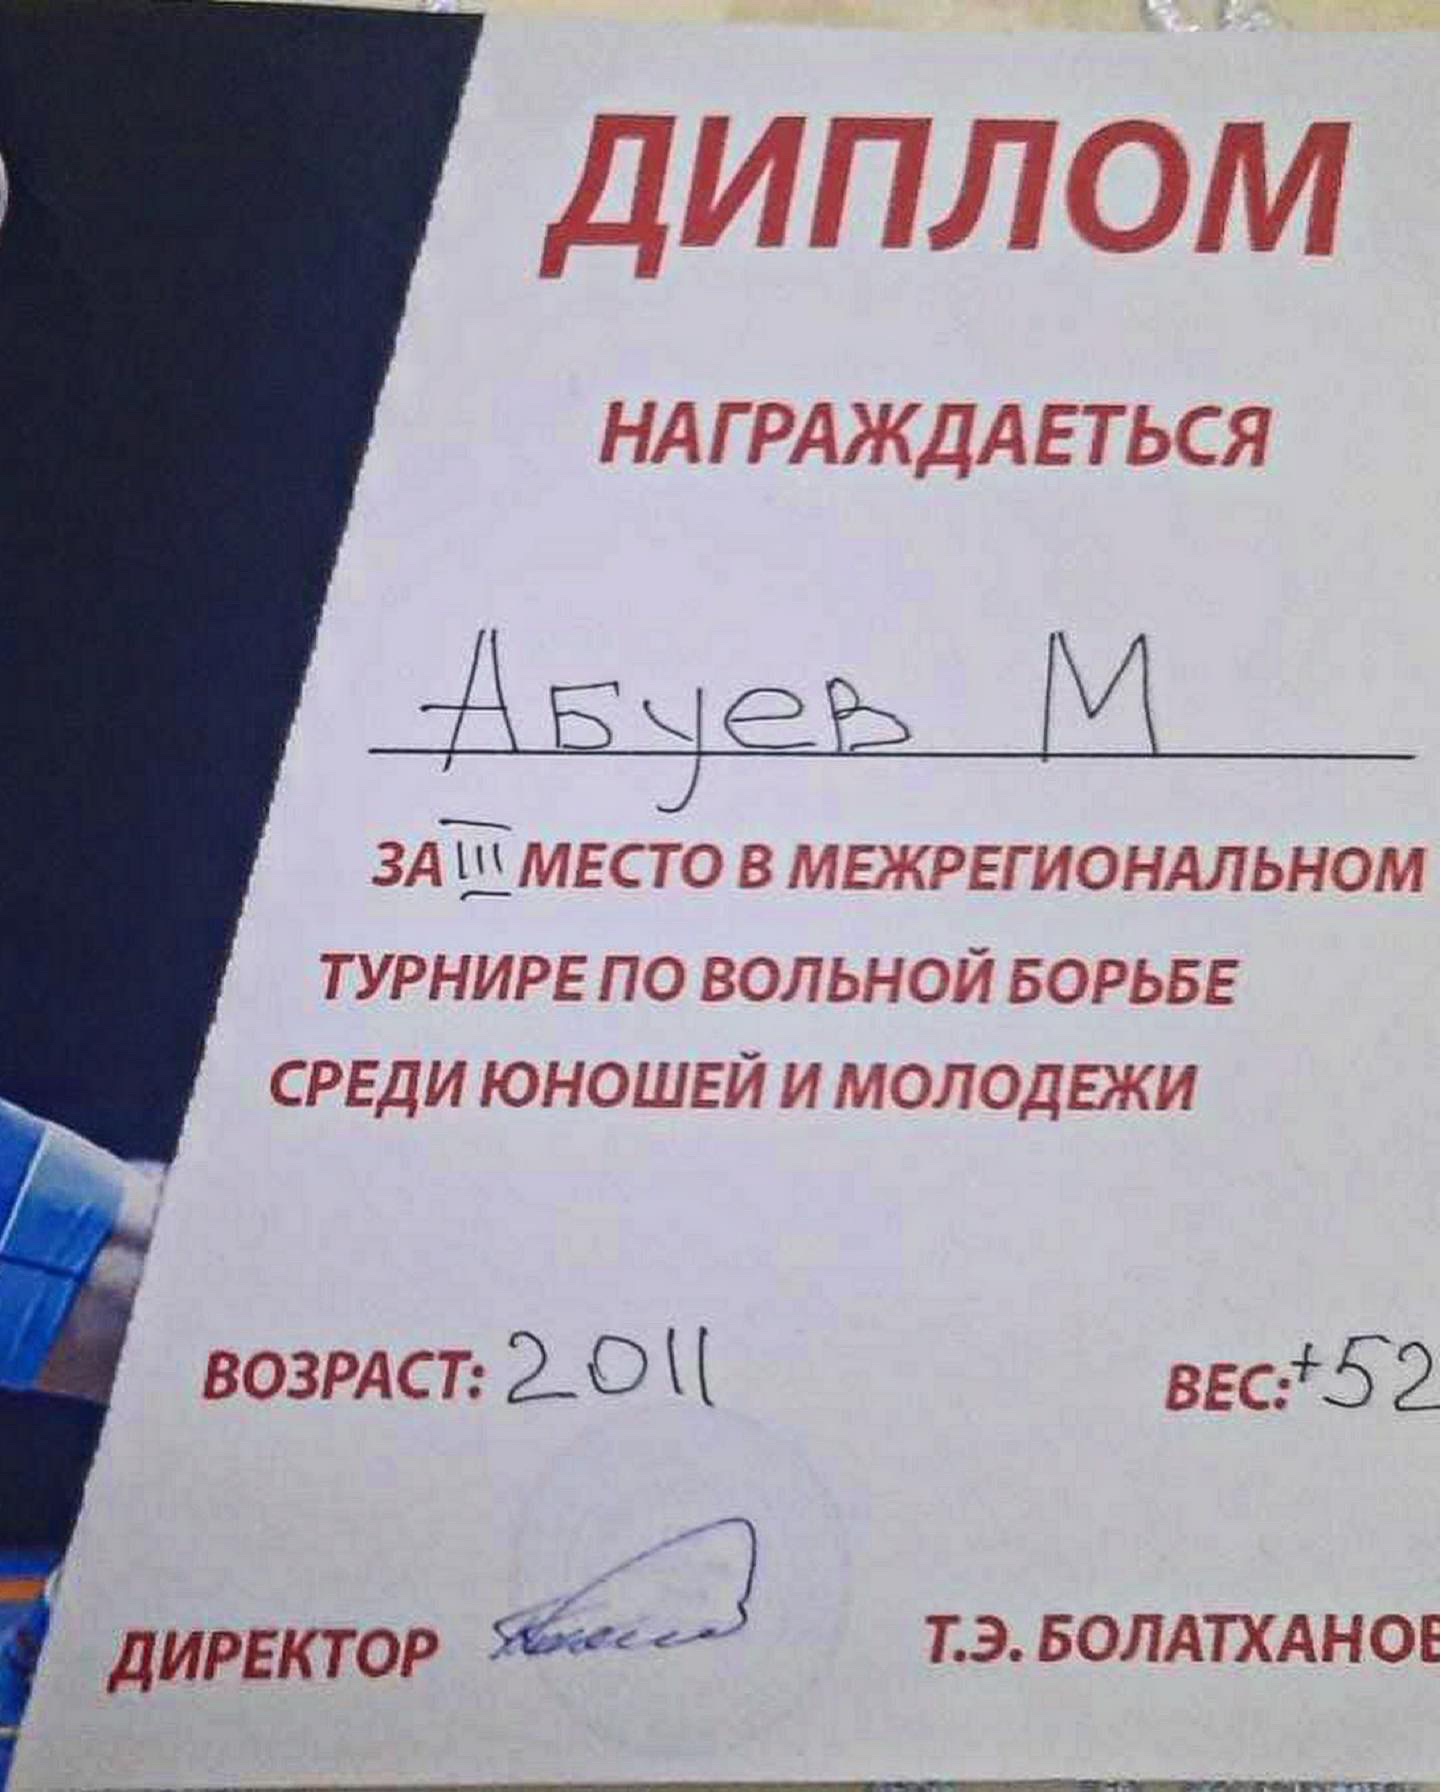 ДИПЛОМ
НАГРАЖДАЕТЬСЯ
Абуев М
ЗА III МЕСТО В МЕЖРЕГИОНАЛЬНОМ
ТУРНИРЕ ПО ВОЛЬНОЙ БОРЬБЕ
СРЕДИ ЮНОШЕЙ И МОЛОДЕЖИ
ВОЗРАСТ: 2011 ВЕС: +52
ДИРЕКТОР Т.Э. БОЛАТХАНОВ